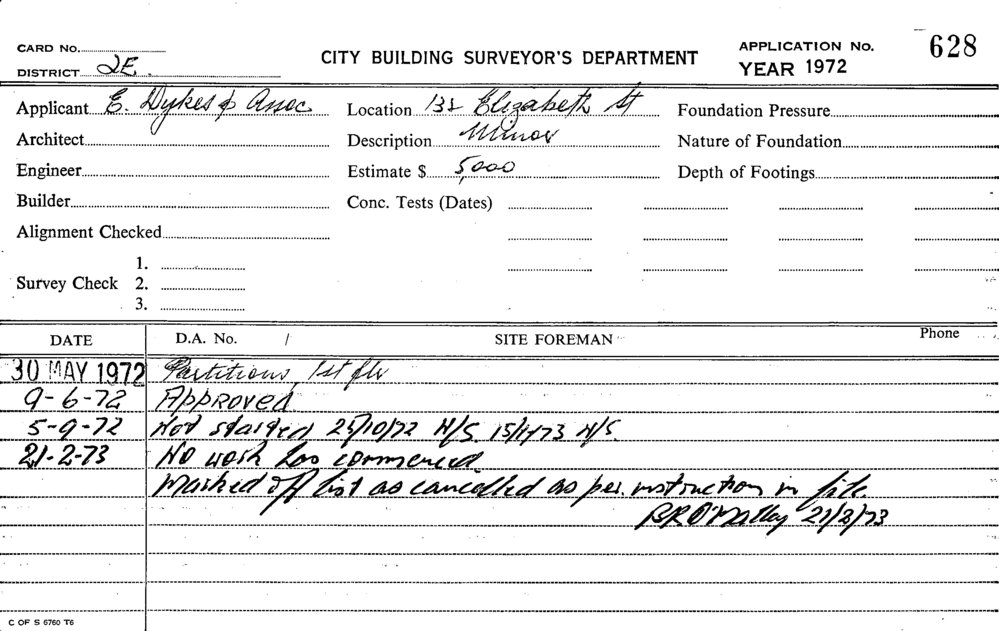 CARD No.
DISTRICT 2E.
CITY BUILDING SURVEYOR'S DEPARTMENT
APPLICATION No. 628
YEAR 1972
Applicant E. Dykes & Assoc
Location 132 Elizabeth St
Foundation Pressure
Architect
Description Minor
Nature of Foundation
Engineer
Estimate $ 5,000
Depth of Footings
Builder
Conc. Tests (Dates)
Alignment Checked
Survey Check
1.
2.
3.
DATE D.A. No. / SITE FOREMAN Phone
30 MAY 1972 Partitions 1st flr
9-6-72 Approved
5-9-72 Not started 25/10/72 N/S. 15/1/73 N/S
21-2-73 No work has commenced
Marked off list as cancelled as per instruction in file
B R O'Malley 21/2/73
C OF S 6760 T6